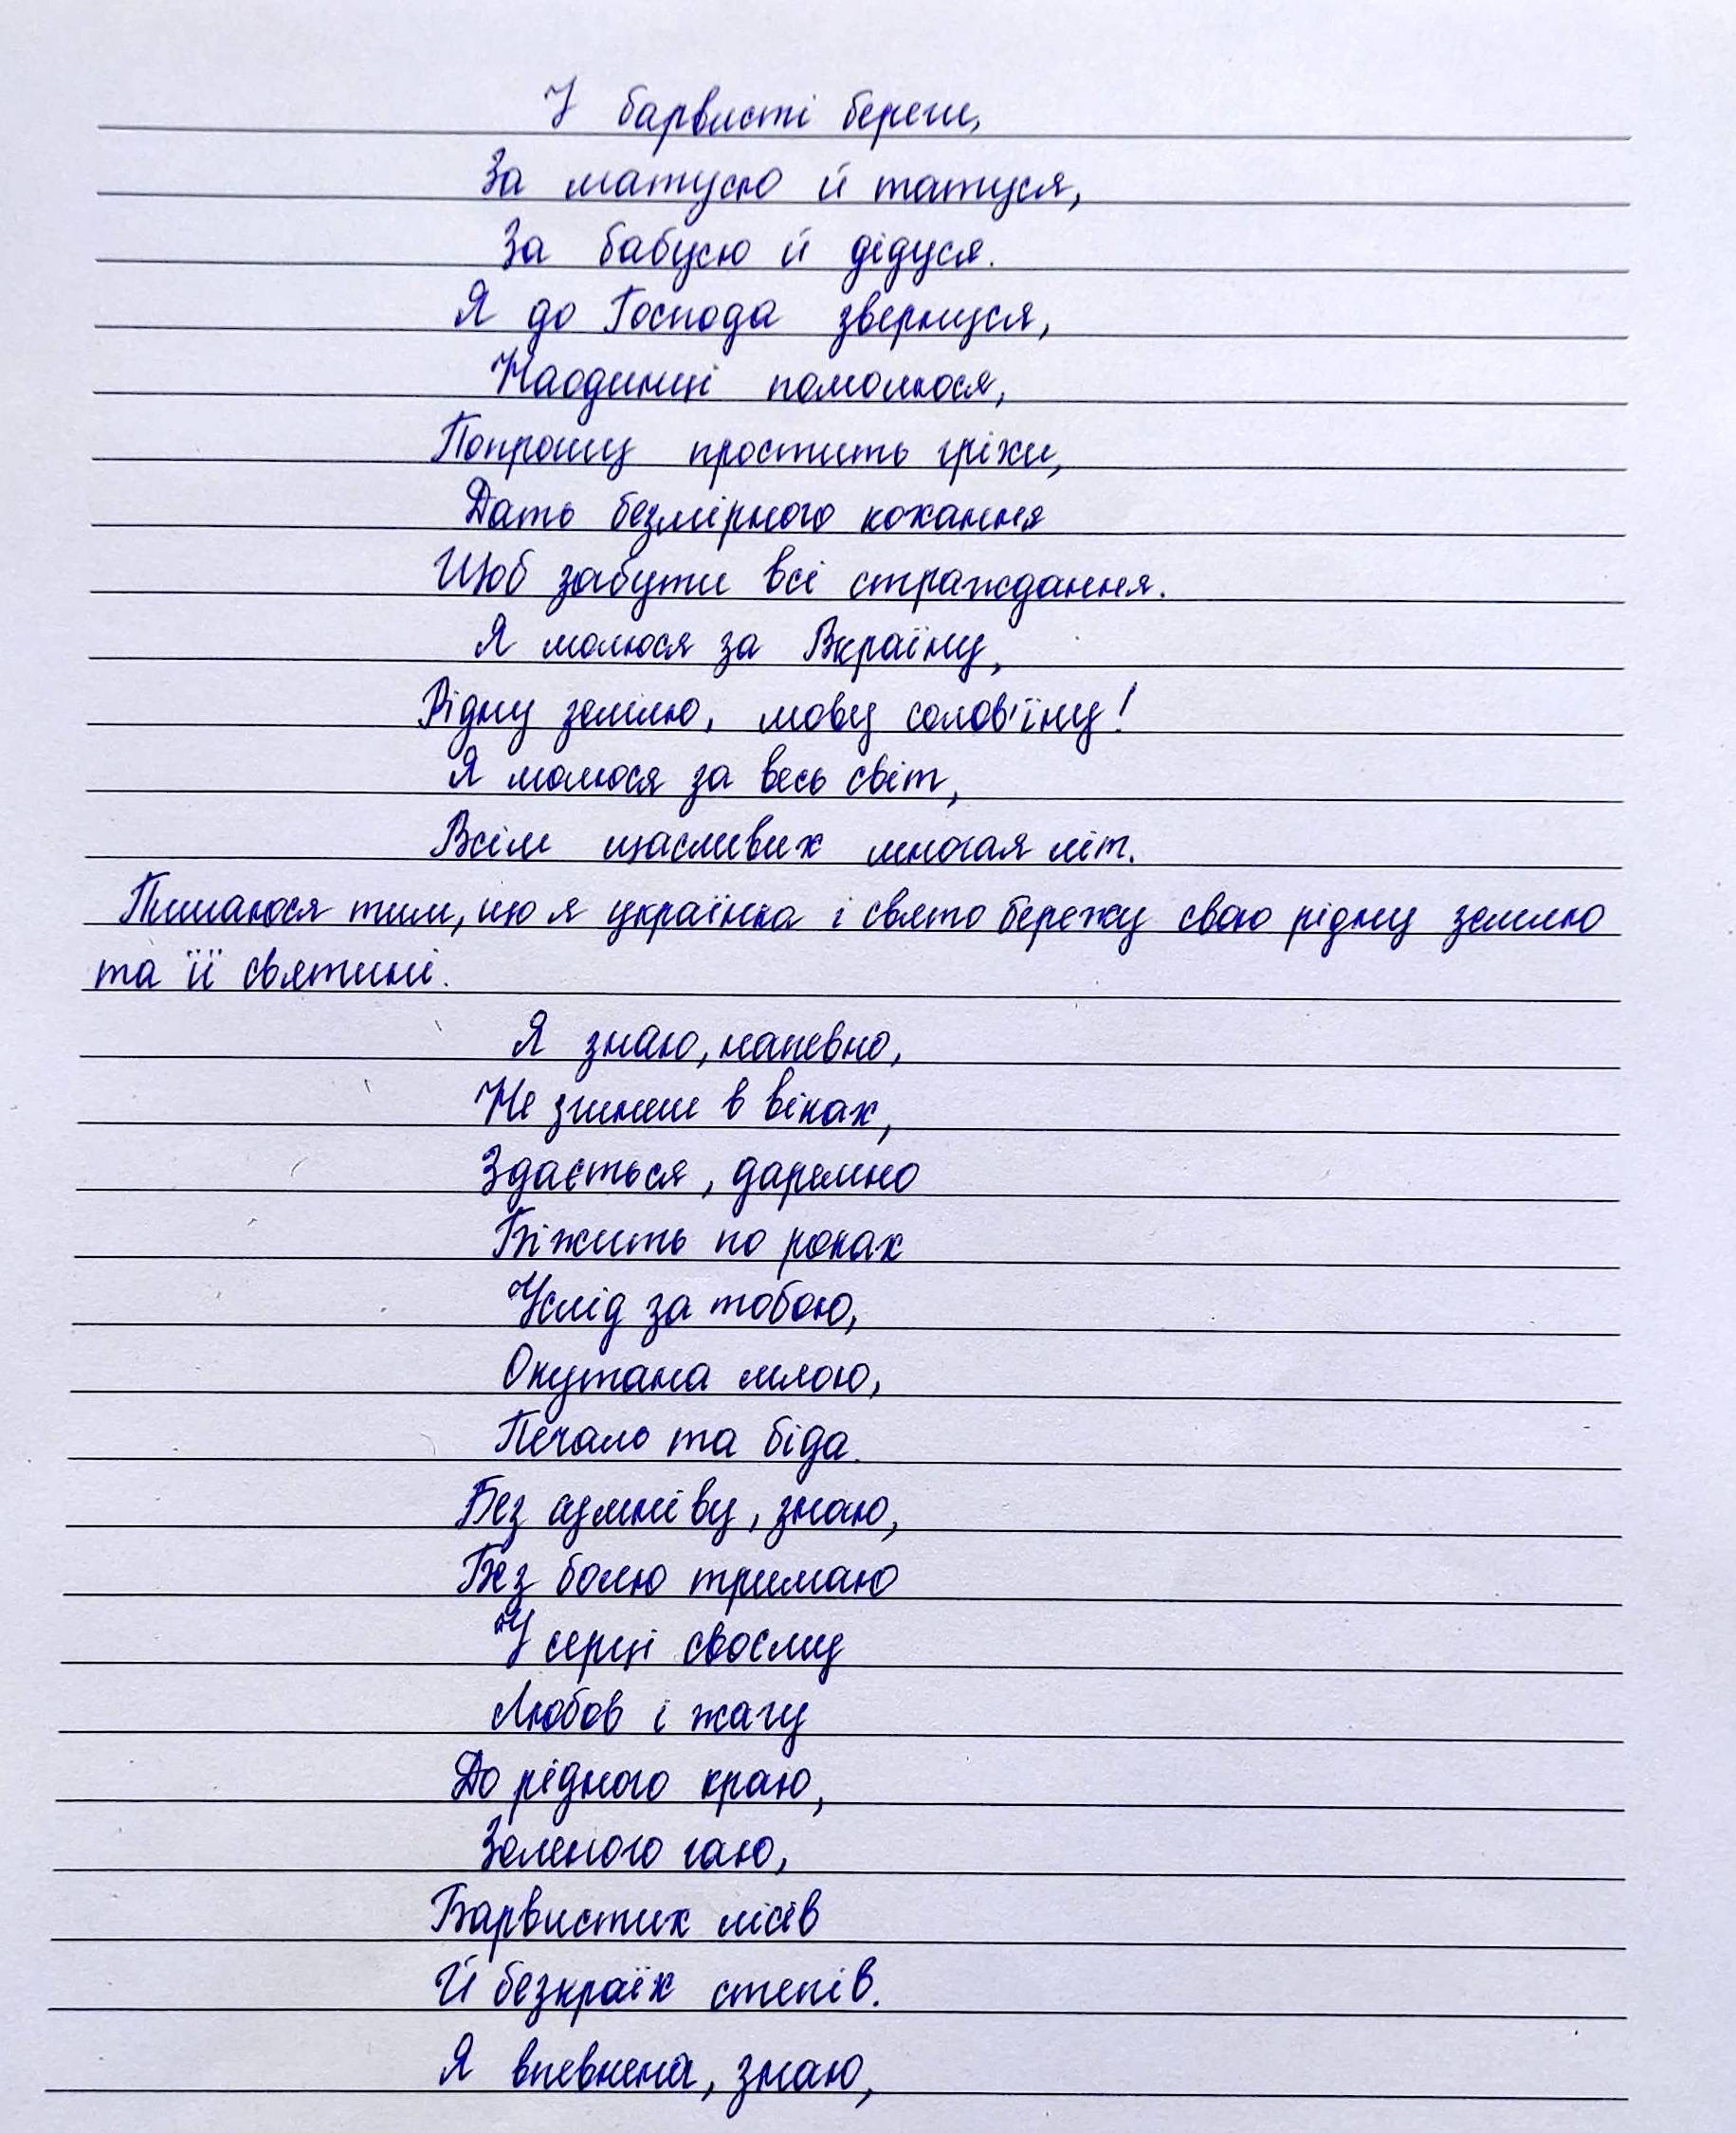 У барвисті береги,
За матусю й татуся,
За бабусю й дідуся.
Я до Господа звернуся,
Наодинці помолюся,
Попрошу простить гріхи,
Дать безмірного кохання
Щоб забути всі страждання.
Я молюся за Вкраїну,
Рідну землю, мову солов'їну!
Я молюся за весь світ,
Всім щасливих многая літ.
Пишаюся тим, що я українка і свято бережу свою рідну землю
та її святині.
Я знаю, напевно,
Не згинеш в віках,
Здається, даремно
Біжить по роках
Услід за тобою,
Окутана млою,
Печаль та біда.
Без сумніву, знаю,
Без болю тримаю
У серці своєму
Любов і жагу
До рідного краю,
Зеленого гаю,
Барвистих лісів
Й безкраїх степів.
Я впевнена, знаю,